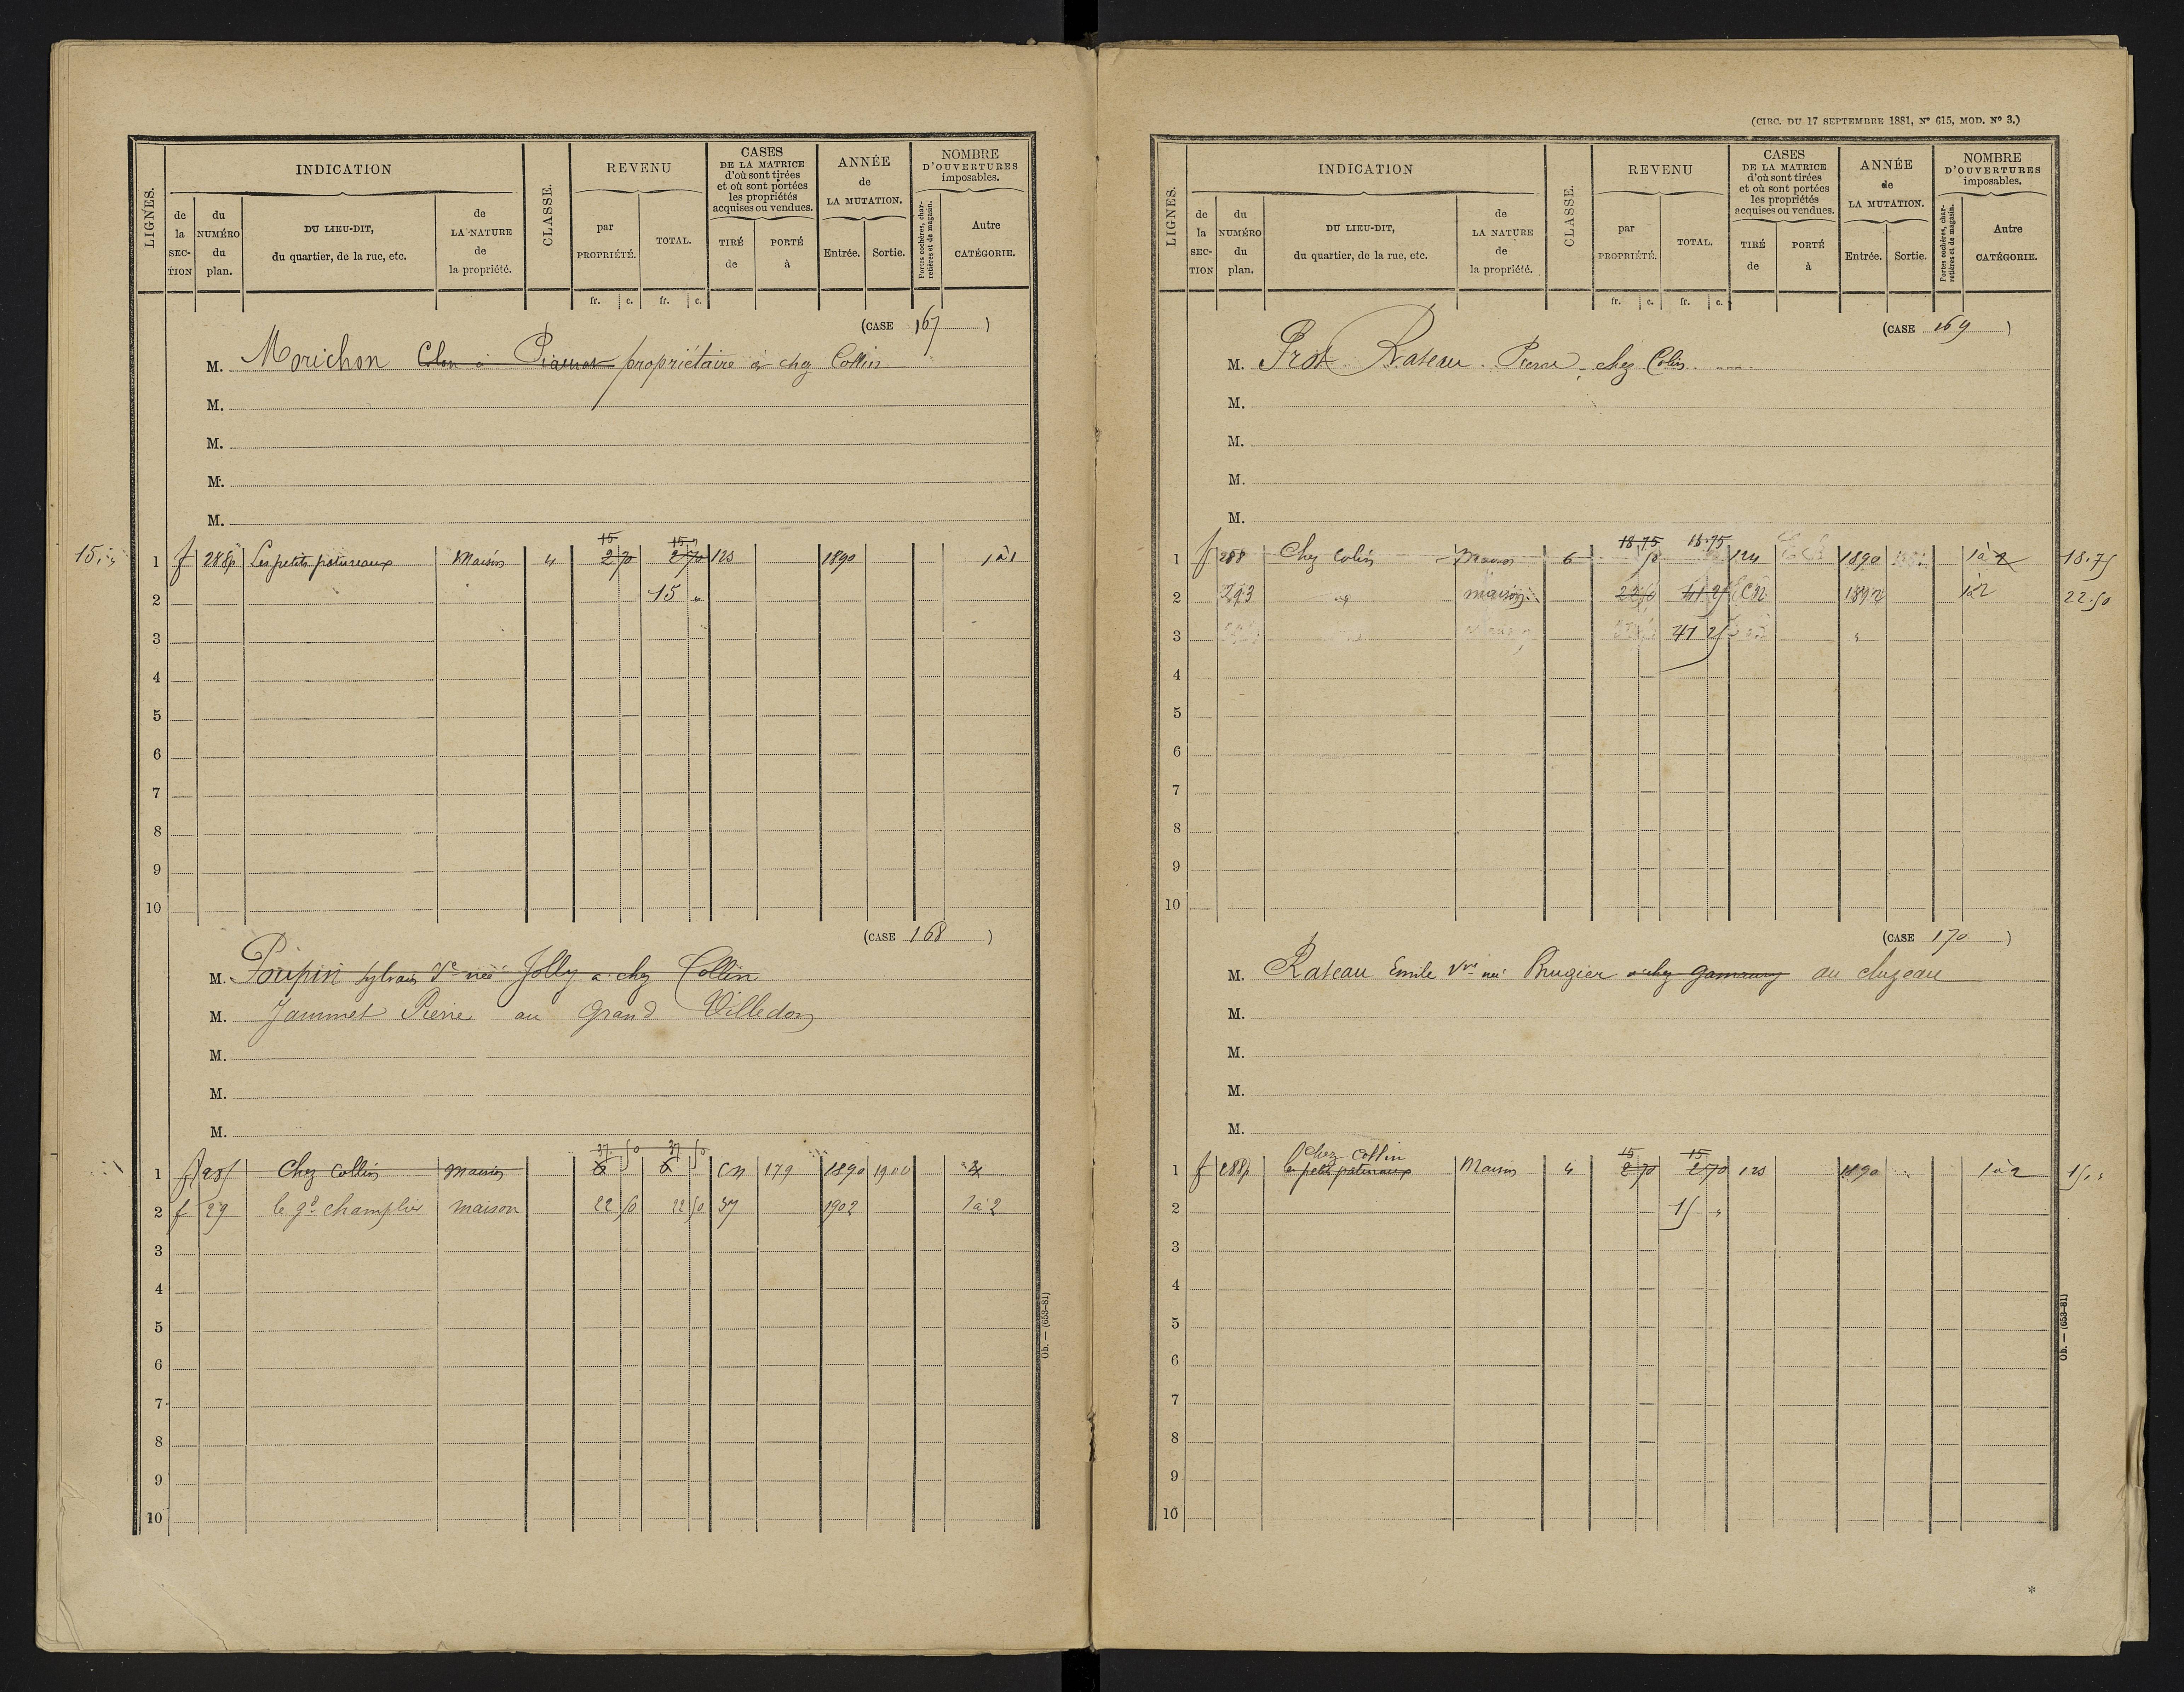 LIGNES.
INDICATION
de la SECTION
du NUMÉRO du plan.
DU LIEU-DIT, du quartier, de la rue, etc.
de LA NATURE de la propriété.
CLASSE.
REVENU
par PROPRIÉTÉ.
TOTAL.
fr. c. fr. c.
CASES DE LA MATRICE d'où sont tirées et où sont portées les propriétés acquises ou vendues.
TIRÉ de
PORTÉ à
ANNÉE de LA MUTATION.
Entrée. Sortie.
NOMBRE D'OUVERTURES imposables.
Portes cochères, charretières et de magasin.
Autre CATÉGORIE.
(CASE 167)
M. Morichon Colon à propriétaire à chez Collin
M.
M.
M.
M.
15 15 "
15 " 1 f 288p Les petits patureaux Maison 4 2 70 2 70 123 1890 1 à 1
2 15 "
3
4
5
6
7
8
9
10
(CASE 168)
M. Poupin Sylvain Ve née Jolly à chez Collin
M. Jammet Pierre au Grand Villedon
M.
M.
M.
37 50 37 50
1 f 285 Chez Collin maison 6 6 CN 179 1890 1900 2
2 f 29 le gd champlier maison 22 50 22 50 37 1902 1 à 2
3
4
5
6
7
8
9
10
Ob. — (653-81)
(CIRC. DU 17 SEPTEMBRE 1881, N° 615, MOD. N° 3.)
LIGNES.
INDICATION
de la SECTION
du NUMÉRO du plan.
DU LIEU-DIT, du quartier, de la rue, etc.
de LA NATURE de la propriété.
CLASSE.
REVENU
par PROPRIÉTÉ.
TOTAL.
fr. c. fr. c.
CASES DE LA MATRICE d'où sont tirées et où sont portées les propriétés acquises ou vendues.
TIRÉ de
PORTÉ à
ANNÉE de LA MUTATION.
Entrée. Sortie.
NOMBRE D'OUVERTURES imposables.
Portes cochères, charretières et de magasin.
Autre CATÉGORIE.
(CASE 169)
M. Prot Rateau Pierre chez Colin
M.
M.
M.
M.
18.75 18.75
1 f 288 Chez Colin Maison 6 124 1890 1 à 2 18.75
2 293 " maison 22 50 41 25 CN 1892 1 à 2 22.50
3 41 25 "
4
5
6
7
8
9
10
(CASE 170)
M. Rateau Emile Vve née Brugier à chez Gamaury au cluzeau
M.
M.
M.
M.
Chez Collin 15 15
1 f 288p les petits patureaux Maison 4 2 70 2 70 123 1890 1 à 2 15 "
2 15 "
3
4
5
6
7
8
9
10
Ob. — (653-81)
*